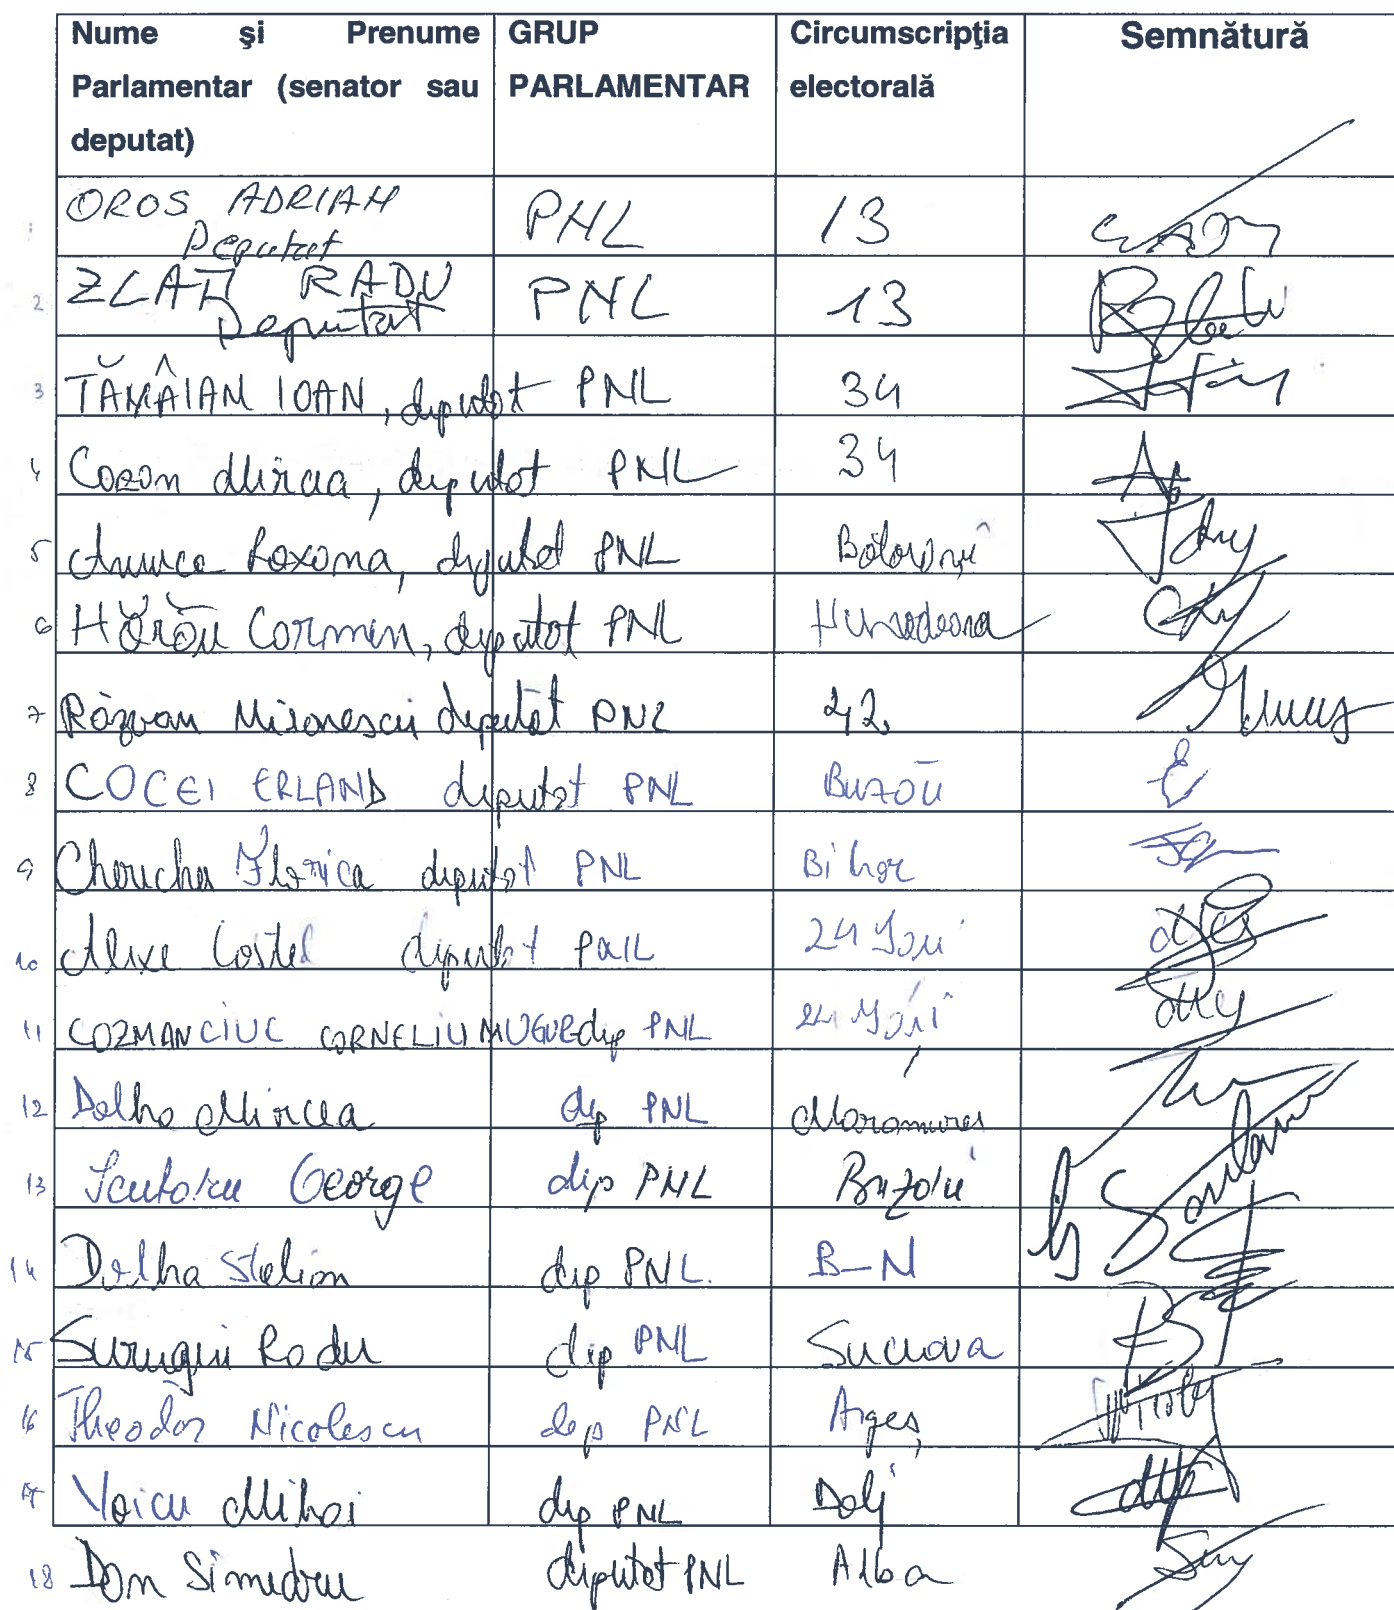 Nume și Prenume Parlamentar (senator sau deputat) GRUP PARLAMENTAR Circumscripția electorală Semnătură
1 OROS ADRIAN Deputat PNL 13
2 ZLATI RADU Deputat PNL 13
3 TĂMÂIAN IOAN, deputat PNL 34
4 Cozon Mircea, deputat PNL 34
5 Roxana, deputat PNL Botoșani
6 Hărău Carmen, deputat PNL Hunedoara
7 Răzvan Mironescu deputat PNL 42
8 COCEI ERLAND deputat PNL Buzău
9 Cherecheș Florica deputat PNL Bihor
10 Alexe Costel deputat PNL 24 Iași
11 COZMANCIUC CORNELIU MUGUR dep PNL 24 Iași
12 Dolha Mircea dep PNL Maramureș
13 Scutaru George dep PNL Buzău
14 Dolha Stelian dep PNL. B-N
15 Surugiu Radu dep PNL Suceava
16 Theodor Nicolescu dep PNL Argeș
17 Voicu Mihai dep PNL Dolj
18 Dan Simedru deputat PNL Alba